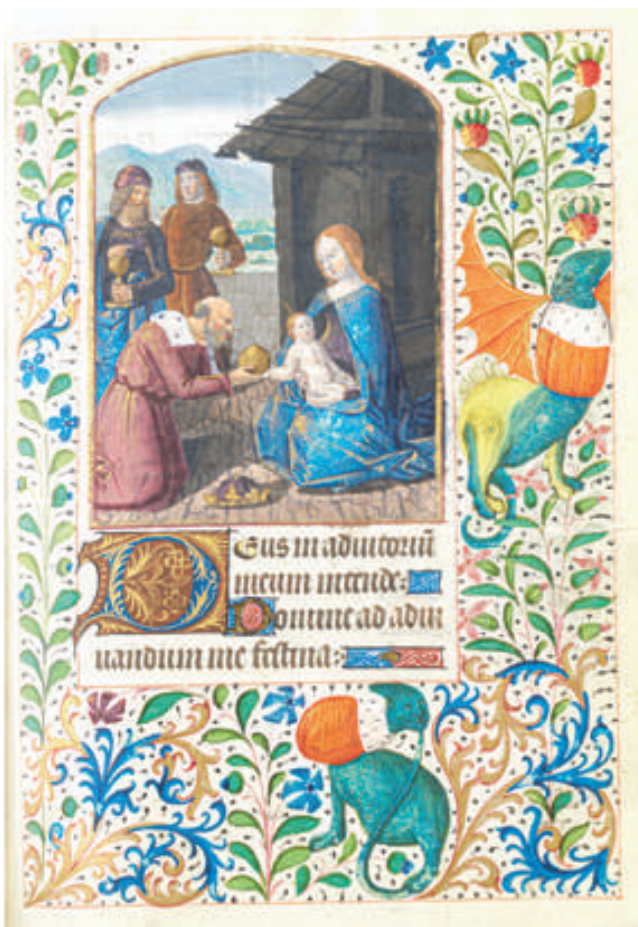 Deus in adiutoriũ
meum intende:
Domine ad adiu
uandum me festina: